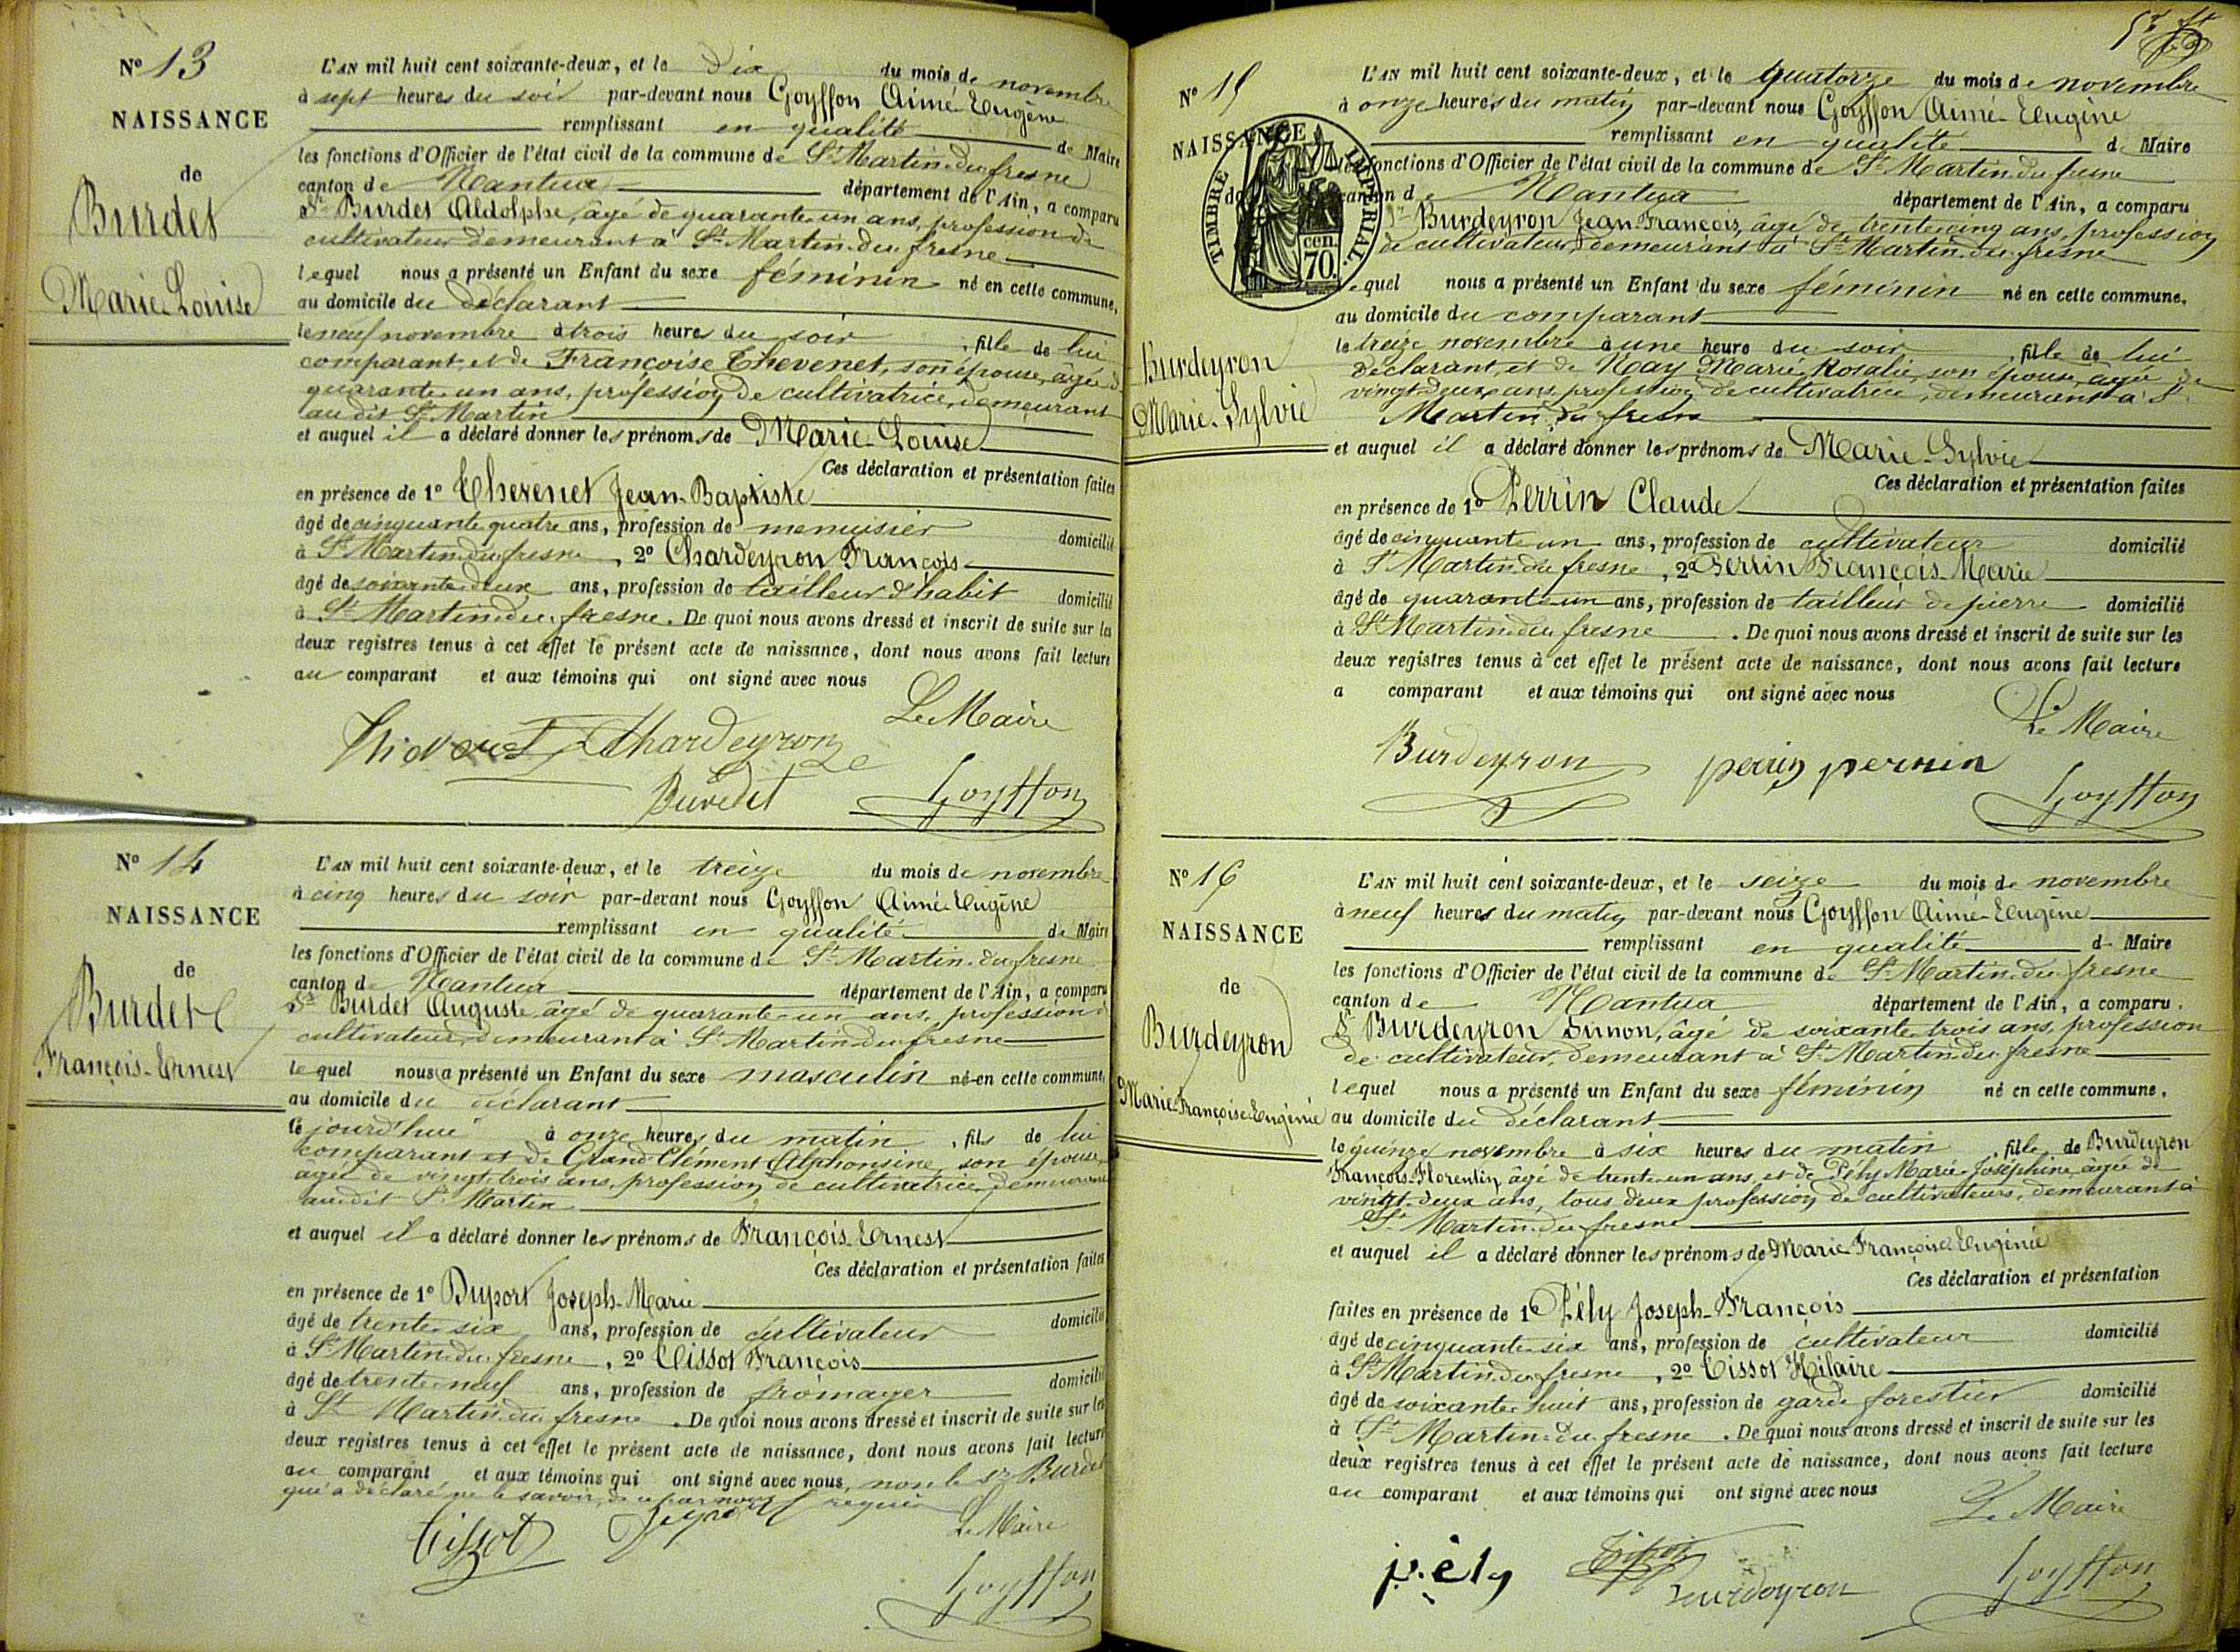 Nº 13
NAISSANCE
de
Burdet
Marie-Louise
L'AN mil huit cent soixante-deux, et le dix du mois de novembre
à sept heures du soir par-devant nous Goyffon Aimé-Eugène
remplissant en qualité de Maire
les fonctions d'Officier de l'état civil de la commune de St Martin-du-fresne
canton de Nantua département de l'Ain, a comparu
Sr Burdet Aldolphe, âgé de quarante-un ans, profession de
cultivateur demeurant à St Martin-du-fresne
lequel nous a présenté un Enfant du sexe féminin né en cette commune,
au domicile du déclarant
le neuf novembre à trois heures du soir, fille de lui
comparant, et de Françoise Thevenet, son épouse, âgée de
quarante-un ans, profession de cultivatrice, demeurant
au dit St Martin
et auquel il a déclaré donner les prénoms de Marie-Louise
Ces déclaration et présentation faites
en présence de 1º Thevenet Jean-Baptiste
âgé de cinquante quatre ans, profession de menuisier domicilié
à St Martin-du-fresne, 2º Chardeyron François
âgé de soixante-deux ans, profession de tailleur d'habit domicilié
à St Martin-du-fresne. De quoi nous avons dressé et inscrit de suite sur les
deux registres tenus à cet effet le présent acte de naissance, dont nous avons fait lecture
au comparant et aux témoins qui ont signé avec nous
Le Maire
Chardeyron
Burdet Goyffon
Nº 14
NAISSANCE
de
Burdet
François-Ernest
L'AN mil huit cent soixante-deux, et le treize du mois de novembre
à cinq heures du soir par-devant nous Goyffon Aimé-Eugène
remplissant en qualité de Maire
les fonctions d'Officier de l'état civil de la commune de St Martin-du-fresne
canton de Nantua département de l'Ain, a comparu
Sr Burdet Auguste, âgé de quarante-un ans, profession de
cultivateur, demeurant à St Martin-du-fresne
lequel nous a présenté un Enfant du sexe masculin né en cette commune,
au domicile du déclarant
ce jourd'hui à onze heures du matin, fils de lui
comparant et de Grand-Clément Alphonsine, son épouse,
âgée de vingt-trois ans, profession de cultivatrice, demeurant
au dit St Martin
et auquel il a déclaré donner les prénoms de François-Ernest
Ces déclaration et présentation faites
en présence de 1º Duport Joseph-Marie
âgé de trente-six ans, profession de cultivateur domicilié
à St Martin-du-fresne, 2º Tissot François
âgé de trente-neuf ans, profession de fromager domicilié
à St Martin-du-fresne. De quoi nous avons dressé et inscrit de suite sur les
deux registres tenus à cet effet le présent acte de naissance, dont nous avons fait lecture
au comparant et aux témoins qui ont signé avec nous, non le Sr Burdet
qui a déclaré ne le savoir, de ce par nous requis
Le Maire
Tissot
Goyffon
Nº 15
NAISSANCE
de
TIMBRE IMPERIAL
70 cen.
Burdeyron
Marie-Sylvie
L'AN mil huit cent soixante-deux, et le quatorze du mois de novembre
à onze heures du matin par-devant nous Goyffon Aimé-Eugène
remplissant en qualité de Maire
les fonctions d'Officier de l'état civil de la commune de St Martin-du-fresne
canton de Nantua département de l'Ain, a comparu
Sr Burdeyron Jean-François, âgé de trente-cinq ans, profession
de cultivateur, demeurant à St Martin-du-fresne
lequel nous a présenté un Enfant du sexe féminin né en cette commune,
au domicile du comparant
le treize novembre à une heure du soir, fille de lui
déclarant, et de Nay Marie-Rosalie, son épouse, âgée de
vingt-deux ans, profession de cultivatrice, demeurant à St
Martin-du-fresne
et auquel il a déclaré donner les prénoms de Marie-Sylvie
Ces déclaration et présentation faites
en présence de 1º Perrin Claude
âgé de cinquante-un ans, profession de cultivateur domicilié
à St Martin-du-fresne, 2º Perrin François-Marie
âgé de quarante-un ans, profession de tailleur de pierre domicilié
à St Martin-du-fresne. De quoi nous avons dressé et inscrit de suite sur les
deux registres tenus à cet effet le présent acte de naissance, dont nous avons fait lecture
a comparant et aux témoins qui ont signé avec nous
Le Maire
Burdeyron perrin perrin
Goyffon
Nº 16
NAISSANCE
de
Burdeyron
Marie-Françoise-Eugénie
L'AN mil huit cent soixante-deux, et le seize du mois de novembre
à neuf heures du matin par-devant nous Goyffon Aimé-Eugène
remplissant en qualité de Maire
les fonctions d'Officier de l'état civil de la commune de St Martin-du-fresne
canton de Nantua département de l'Ain, a comparu.
Sr Burdeyron Simon, âgé de soixante-trois ans, profession
de cultivateur, demeurant à St Martin-du-fresne
lequel nous a présenté un Enfant du sexe féminin né en cette commune.
au domicile du déclarant
le quinze novembre à six heures du matin, fille de Burdeyron
François-Florentin âgé de trente-un ans et de Pély Marie-Joséphine âgée de
vingt-deux ans, tous deux profession de cultivateurs, demeurant à
St Martin-du-fresne
et auquel il a déclaré donner les prénoms de Marie Françoise Eugénie
Ces déclaration et présentation
faites en présence de 1º Pély Joseph-François
âgé de cinquante-six ans, profession de cultivateur domicilié
à St Martin-du-fresne, 2º Tissot Hilaire
âgé de soixante-huit ans, profession de garde forestier domicilié
à St Martin-du-fresne. De quoi nous avons dressé et inscrit de suite sur les
deux registres tenus à cet effet le présent acte de naissance, dont nous avons fait lecture
au comparant et aux témoins qui ont signé avec nous
Le Maire
pély Tissot
Burdeyron Goyffon